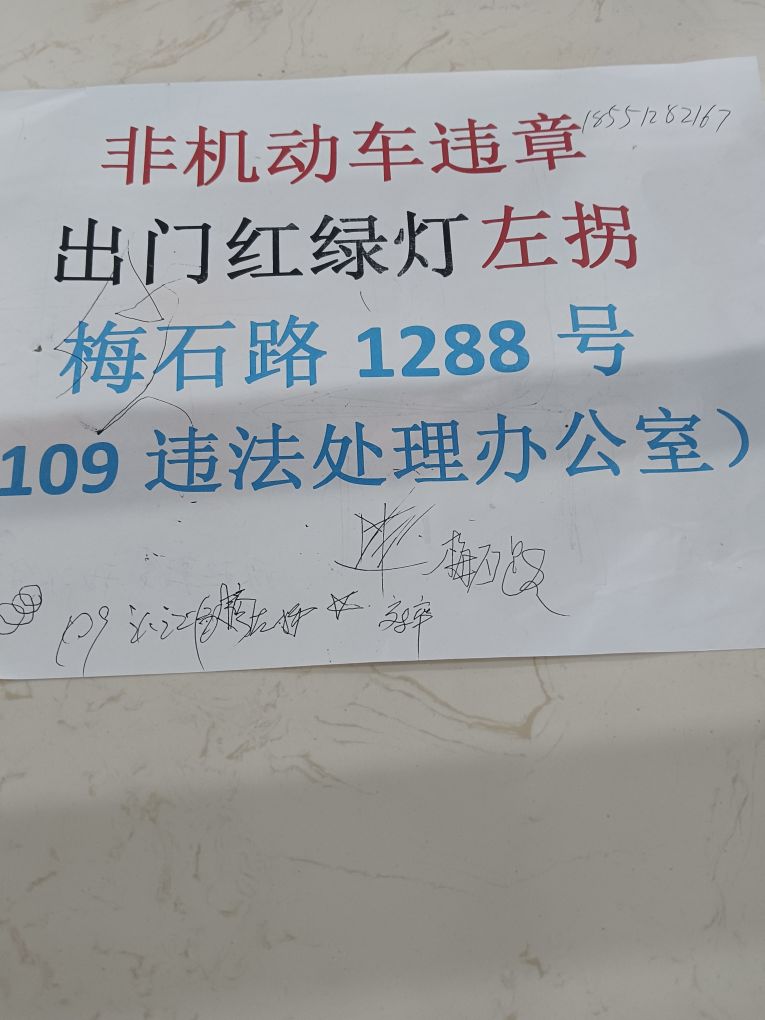 非机动车违章
18551282167
出门红绿灯左拐
梅石路 1288 号
109 违法处理办公室）
梅石路
109